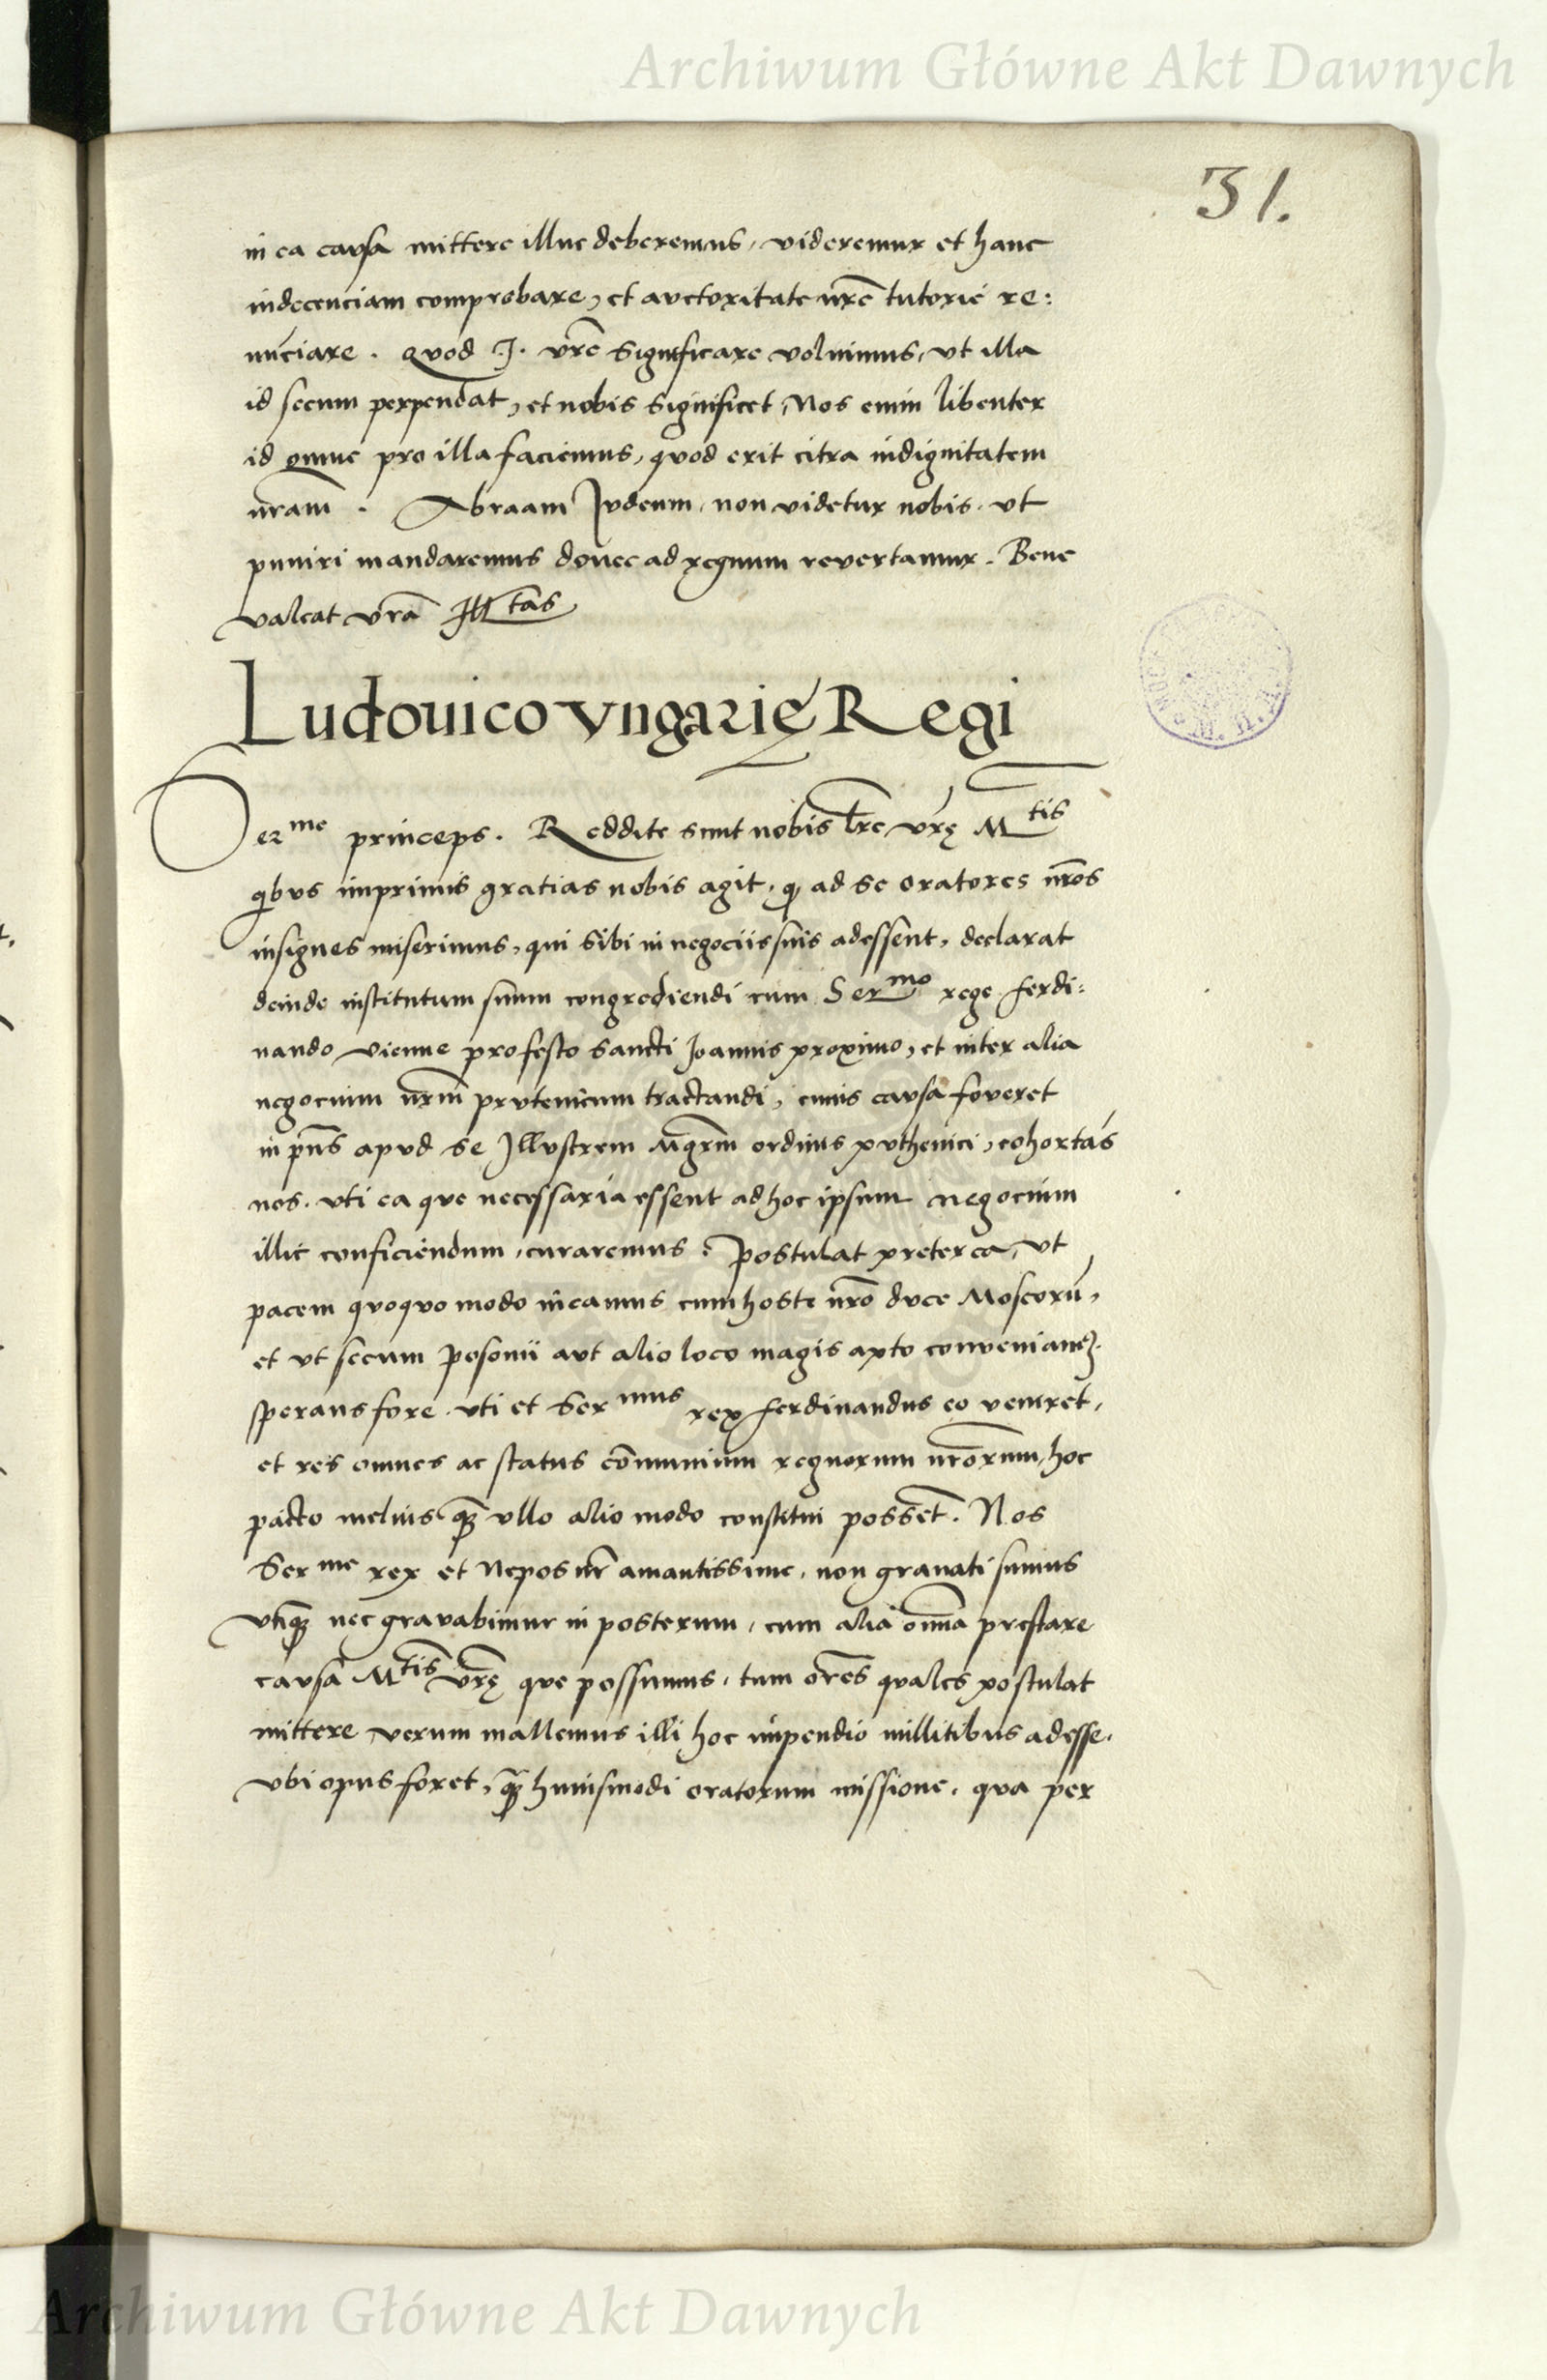 Archiwum Główne Akt Dawnych
31.
in ea causa mittere illuc deberemus, videremur et hanc
indecenciam comprobare, et auctoritate nr̃e tutorie re:
nunciare. Quod .I. vr̃e significare voluimus, ut illa
id secum perpendat, et nobis significet, Nos enim libenter
id omne pro illa faciemus, quod erit citra indignitatem
nr̃am. Abraam Judeum, non videtur nobis, ut
puniri mandaremus donec ad regnum revertamur. Bene
valeat vr̃a Illtas
Ludouico Vngarię Regi
Serme princeps. Reddite sunt nobis lr̃e vr̃ę Mtis
qibus imprimis gratias nobis agit, qƺ ad se oratores nr̃os
insignes miserimus, qui sibi in negociis suis adessent, declarat
deinde institutum suum congrediendi cum Sermo rege ferdi:
nando vienne pro festo Sancti Joannis proximo, et inter alia
negocium nr̃m prutenicum tractandi, cuius causa foveret
in pñs apud se Illustrem Mgr̃m ordinis puthenici, cohortãs
nos, uti ea que necessaria essent ad hoc ipsum negocium
illic conficiendum, curaremus: Postulat preterea, ut
pacem quoquo modo ineamus cum hoste nr̃o duce Moscorũ,
et ut secum Posonii aut alio loco magis apto conveniamꝰ.
sperans fore, uti et Sermus rex ferdinandus eo veniret,
et res omnes ac status cõmunium regnorum nr̃orum, hoc
pacto melius qƺ ullo alio modo constitui possẽt. Nos
Serme rex et Nepos nr̃ amantissime, non gravati sumus
utiqƺ nec gravabimur in posterum, cum alia om̃a prestare
causa Mtis vr̃ę que possumus, tum or̃es quales postulat
mittere verum mallemus illi hoc impendio millitibus adesse,
ubi opus foret, qƺ huiusmodi oratorum missione, qua per
Archiwum Główne Akt Dawnych